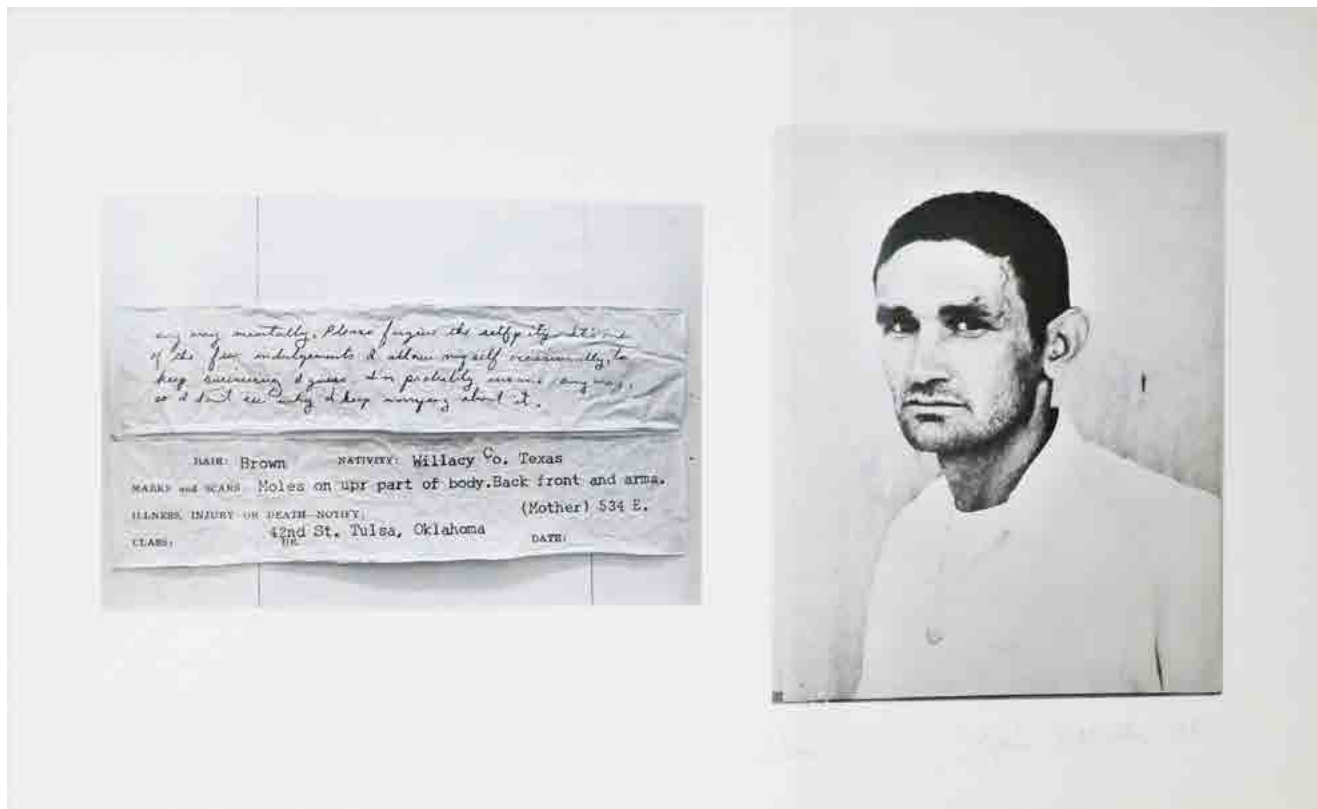 any way mentally. Please forgive the selfpity. It's one
of the few indulgements I allow myself occasionally, to
keep surviving I guess. I'm probably insane anyway,
so I don't see why I keep worrying about it.
HAIR: Brown NATIVITY: Willacy Co. Texas
MARKS and SCARS Moles on upr part of body.Back front and arms.
ILLNESS, INJURY OR DEATH—NOTIFY: (Mother) 534 E.
42nd St. Tulsa, Oklahoma
CLASS: DATE: